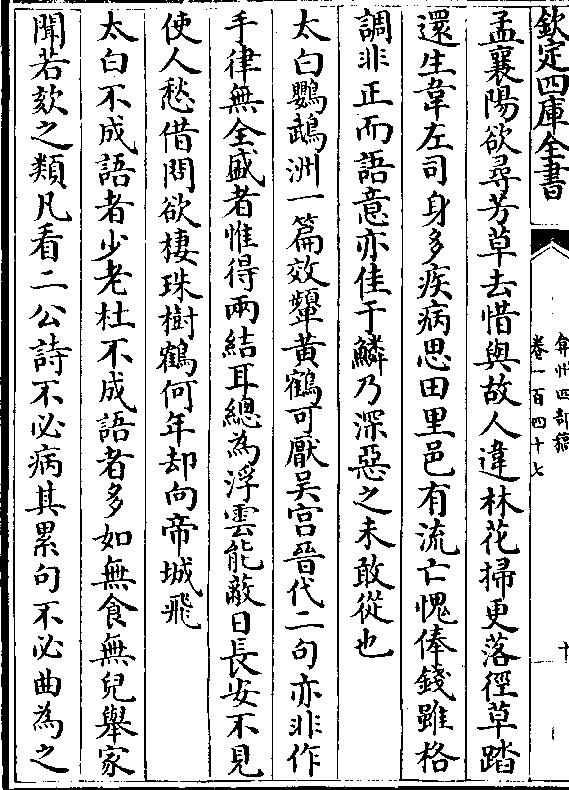 欽定四庫全書
弇州四部稿
卷一百四十七
十
孟襄陽欲尋芳草去惜與故人違林花掃更落徑草踏
還生韋左司身多疾病思田里邑有流亡愧俸錢雖格
調非正而語意亦佳于鱗乃深惡之未敢從也
太白鸚鵡洲一篇效顰黃鶴可厭吳宫晉代二句亦非作
手律無全盛者惟得兩結耳總為浮雲能蔽日長安不見
使人愁借問欲棲珠樹鶴何年却向帝城飛
太白不成語者少老杜不成語者多如無食無兒舉家
聞若欬之類凡看二公詩不必病其累句不必曲為之